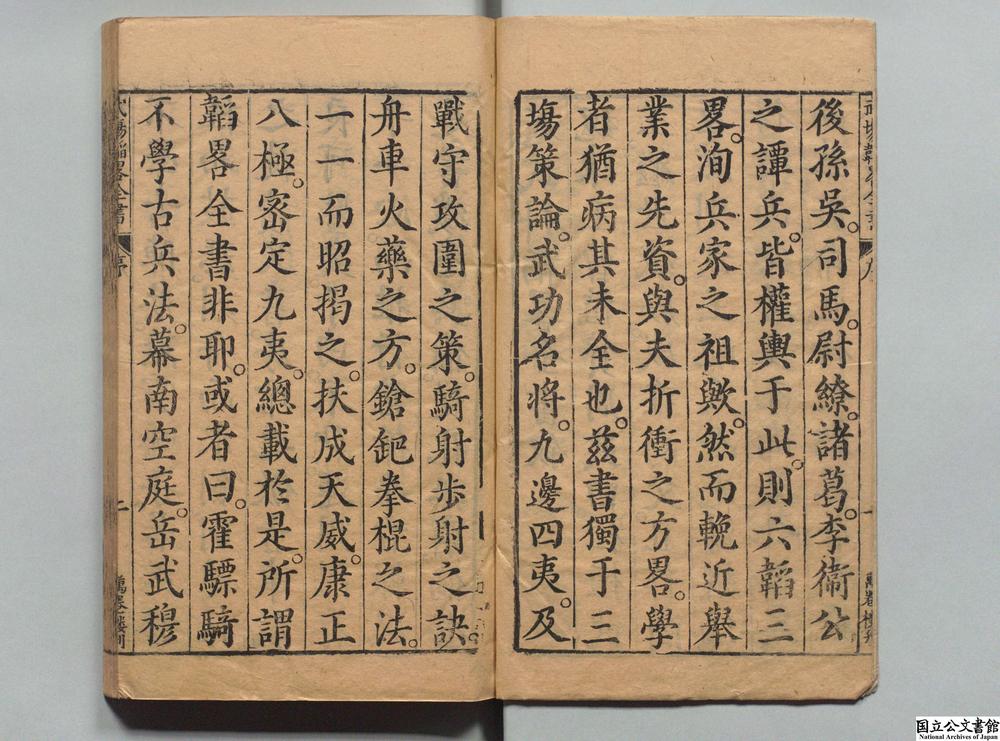 後孫吳。司馬。尉繚。諸葛。李衞公
之譚兵。皆權輿于此。則六韜三
畧。洵兵家之祖歟。然而輓近舉
業之先資。與夫折衝之方畧。學
者猶病其未全也。茲書獨于三
塲策論。武功名將。九邊四夷。及
戰守攻圍之策。騎射步射之訣。
舟車火藥之方。鎗鈀拳棍之法。
一一而昭揭之。扶成天威。康正
八極。密定九夷。總載於是。所謂
韜畧全書非耶。或者曰。霍驃騎
不學古兵法。幕南空庭。岳武穆
序
二
萬卷樓刊
国立公文書館
National Archives of Japan